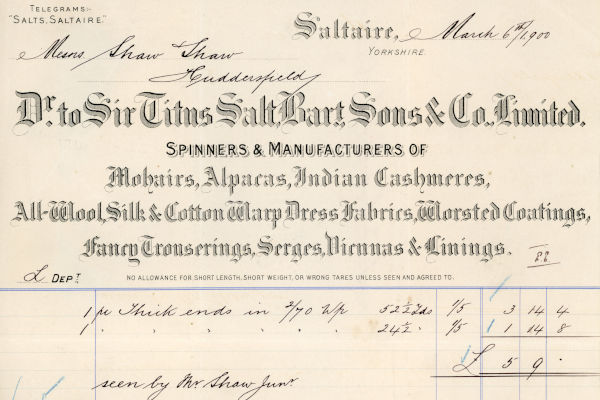 TELEGRAMS:-
"SALTS, SALTAIRE."
Saltaire, March 6th/1900
YORKSHIRE.
Messrs Shaw & Shaw
Huddersfield
Dr. to Sir Titus Salt, Bart. Sons & Co., Limited.
SPINNERS & MANUFACTURERS OF
Mohairs, Alpacas, Indian Cashmeres,
All-Wool, Silk & Cotton Warp Dress Fabrics, Worsted Coatings,
Fancy Trouserings, Serges, Vicunas & Linings.
L DEPT. NO ALLOWANCE FOR SHORT LENGTH, SHORT WEIGHT, OR WRONG TARES UNLESS SEEN AND AGREED TO.
1 pce Thick ends in 2/70 Wp 52½ Yds 1/5 3 14 4
1 " " " " " 24½ " 1/5 1 14 8
£ 5 9 .
seen by Mr. Shaw Junr